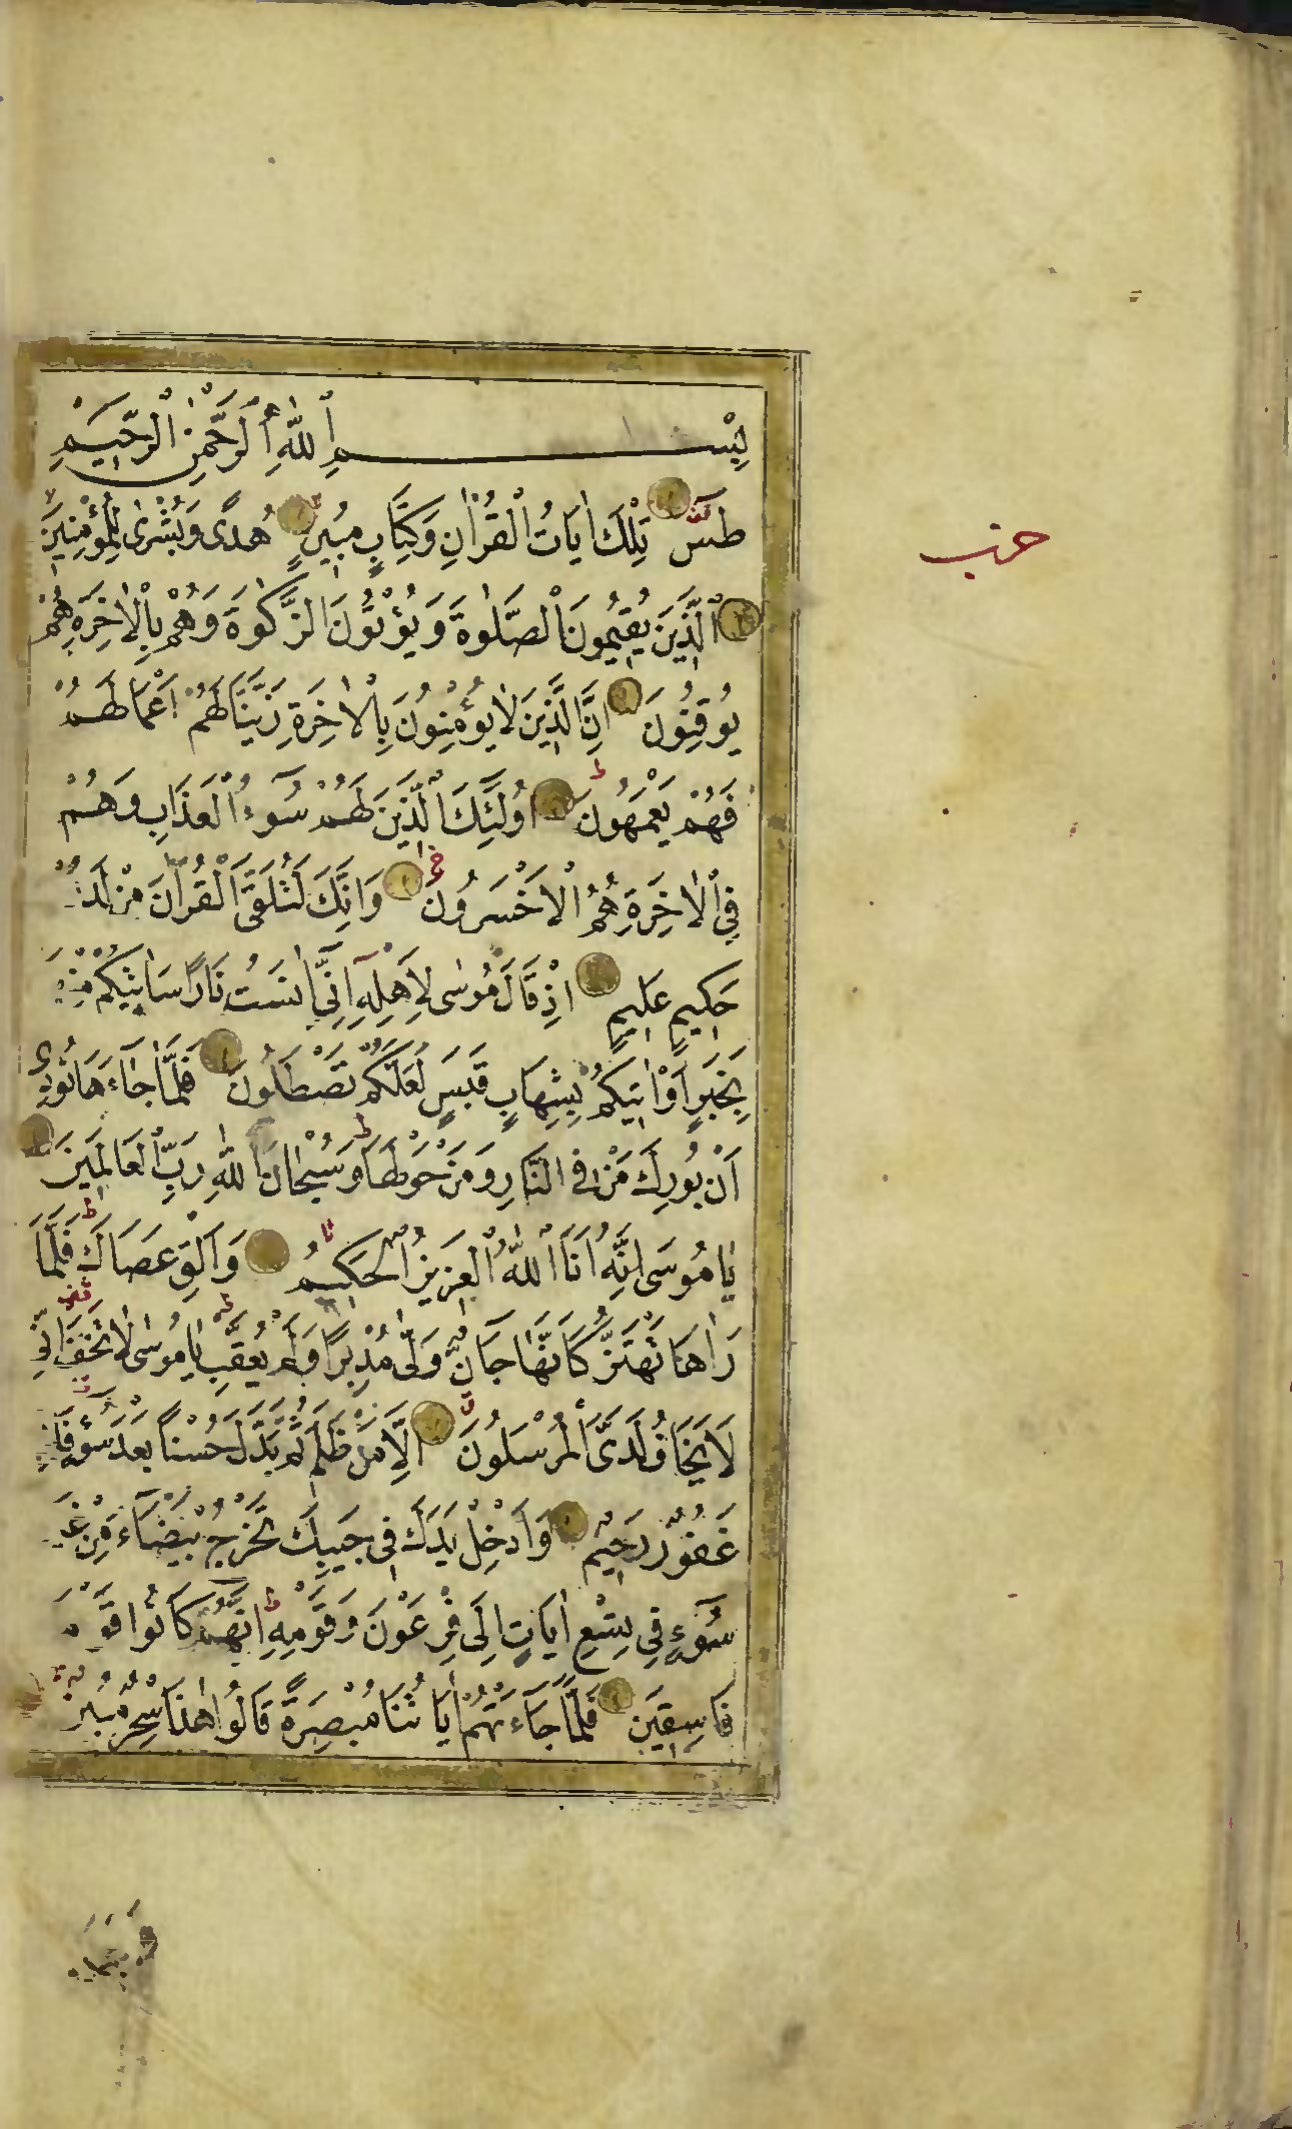 بِسْمِ اللّٰهِ الرَّحْمٰنِ الرَّحِيمِ
طٰسٓ تِلْكَ اٰيَاتُ الْقُرْاٰنِ وَكِتَابٍ مُبِينٍ هُدًى وَبُشْرٰى لِلْمُؤْمِنِينَ
حزب
اَلَّذِينَ يُقِيمُونَ الصَّلٰوةَ وَيُؤْتُونَ الزَّكٰوةَ وَهُمْ بِالْاٰخِرَةِ هُمْ
يُوقِنُونَ اِنَّ الَّذِينَ لَا يُؤْمِنُونَ بِالْاٰخِرَةِ زَيَّنَّا لَهُمْ اَعْمَالَهُمْ
فَهُمْ يَعْمَهُونَ اُولٰٓئِكَ الَّذِينَ لَهُمْ سُٓوءُ الْعَذَابِ وَهُمْ
فِي الْاٰخِرَةِ هُمُ الْاَخْسَرُونَ وَاِنَّكَ لَتُلَقَّى الْقُرْاٰنَ مِنْ لَدُنْ
حَكِيمٍ عَلِيمٍ اِذْ قَالَ مُوسٰى لِاَهْلِهٖٓ اِنِّٓي اٰنَسْتُ نَارًا سَاٰتِيكُمْ مِنْهَا
بِخَبَرٍ اَوْ اٰتِيكُمْ بِشِهَابٍ قَبَسٍ لَعَلَّكُمْ تَصْطَلُونَ فَلَمَّا جَٓاءَهَا نُودِيَ
اَنْ بُورِكَ مَنْ فِي النَّارِ وَمَنْ حَوْلَهَا وَسُبْحَانَ اللّٰهِ رَبِّ الْعَالَمِينَ
يَا مُوسٰٓى اِنَّهُٓ اَنَا اللّٰهُ الْعَزِيزُ الْحَكِيمُ وَاَلْقِ عَصَاكَ فَلَمَّا
رَاٰهَا تَهْتَزُّ كَاَنَّهَا جَٓانٌّ وَلّٰى مُدْبِرًا وَلَمْ يُعَقِّبْ يَا مُوسٰى لَا تَخَفْ اِنِّي
لَا يَخَافُ لَدَيَّ الْمُرْسَلُونَ اِلَّا مَنْ ظَلَمَ ثُمَّ بَدَّلَ حُسْنًا بَعْدَ سُٓوءٍ فَاِنِّي
غَفُورٌ رَحِيمٌ وَاَدْخِلْ يَدَكَ فِي جَيْبِكَ تَخْرُجْ بَيْضَٓاءَ مِنْ غَيْرِ
سُٓوءٍ فِي تِسْعِ اٰيَاتٍ اِلٰى فِرْعَوْنَ وَقَوْمِهٖ اِنَّهُمْ كَانُوا قَوْمًا
فَاسِقِينَ فَلَمَّا جَٓاءَتْهُمْ اٰيَاتُنَا مُبْصِرَةً قَالُوا هٰذَا سِحْرٌ مُبِينٌ